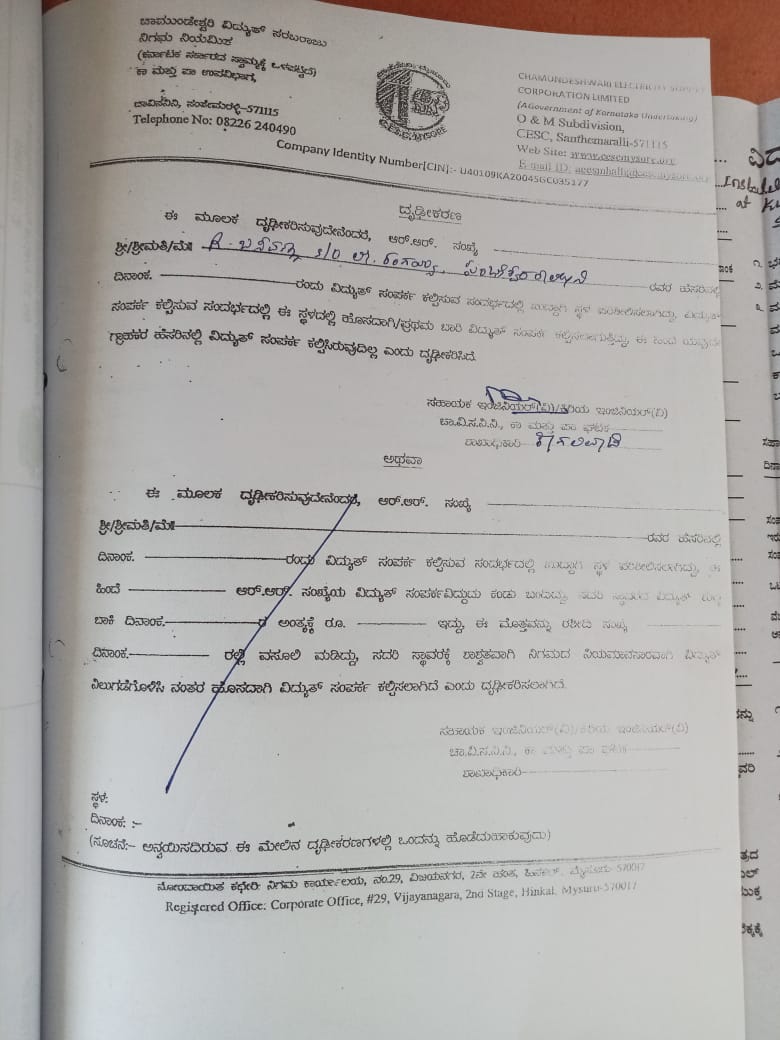 ಚಾಮುಂಡೇಶ್ವರಿ ವಿದ್ಯುತ್ ಸರಬರಾಜು
ನಿಗಮ ನಿಯಮಿತ
(ಕರ್ನಾಟಕ ಸರ್ಕಾರದ ಸ್ವಾಮ್ಯಕ್ಕೆ ಒಳಪಟ್ಟಿದೆ)
ಕಾ ಮತ್ತು ಪಾ ಉಪವಿಭಾಗ,
ಚಾವಿಸನಿನಿ, ಸಂತೇಮರಳ್ಳಿ-571115
Telephone No: 08226 240490
CHAMUNDESHWARI ELECTRICITY SUPPLY
CORPORATION LIMITED
(A Government of Karnataka Undertaking)
O & M Subdivision,
CESC, Santhemaralli-571115
Web Site: www.cescmysore.org
E-mail ID:
Company Identity Number[CIN]:- U40109KA2004SGC035177
ದೃಢೀಕರಣ
ಈ ಮೂಲಕ ದೃಢೀಕರಿಸುವುದೇನೆಂದರೆ, ಆರ್.ಆರ್. ಸಂಖ್ಯೆ
ಶ್ರೀ/ಶ್ರೀಮತಿ/ಮೆ॥ ರವರ ಹೆಸರಿನಲ್ಲಿ
ದಿನಾಂಕ. ರಂದು ವಿದ್ಯುತ್ ಸಂಪರ್ಕ ಕಲ್ಪಿಸುವ ಸಂದರ್ಭದಲ್ಲಿ ಖುದ್ದಾಗಿ ಸ್ಥಳ ಪರಿಶೀಲಿಸಲಾಗಿದ್ದು, ವಿದ್ಯುತ್
ಸಂಪರ್ಕ ಕಲ್ಪಿಸುವ ಸಂದರ್ಭದಲ್ಲಿ ಈ ಸ್ಥಳದಲ್ಲಿ ಹೊಸದಾಗಿ/ಪ್ರಥಮ ಬಾರಿ ವಿದ್ಯುತ್ ಸಂಪರ್ಕ ಕಲ್ಪಿಸಲಾಗುತ್ತಿದ್ದು, ಈ ಹಿಂದೆ ಯಾವುದೇ
ಗ್ರಾಹಕರ ಹೆಸರಿನಲ್ಲಿ ವಿದ್ಯುತ್ ಸಂಪರ್ಕ ಕಲ್ಪಿಸಿರುವುದಿಲ್ಲ ಎಂದು ದೃಢೀಕರಿಸಿದೆ.
ಸಹಾಯಕ ಇಂಜಿನಿಯರ್(ವಿ)/ಕಿರಿಯ ಇಂಜಿನಿಯರ್(ವಿ)
ಚಾ.ವಿ.ಸ.ನಿ.ನಿ., ಕಾ ಮತ್ತು ಪಾ ಘಟಕ
ಶಾಖಾಧಿಕಾರಿ
ಅಥವಾ
ಈ ಮೂಲಕ ದೃಢೀಕರಿಸುವುದೇನೆಂದರೆ, ಆರ್.ಆರ್. ಸಂಖ್ಯೆ
ಶ್ರೀ/ಶ್ರೀಮತಿ/ಮೆ॥ ರವರ ಹೆಸರಿನಲ್ಲಿ
ದಿನಾಂಕ. ರಂದು ವಿದ್ಯುತ್ ಸಂಪರ್ಕ ಕಲ್ಪಿಸುವ ಸಂದರ್ಭದಲ್ಲಿ ಖುದ್ದಾಗಿ ಸ್ಥಳ ಪರಿಶೀಲಿಸಲಾಗಿದ್ದು, ಈ
ಹಿಂದೆ ಆರ್.ಆರ್. ಸಂಖ್ಯೆಯ ವಿದ್ಯುತ್ ಸಂಪರ್ಕವಿದ್ದುದು ಕಂಡು ಬಂದಿದ್ದು, ಸದರಿ ಸ್ಥಾವರದ ವಿದ್ಯುತ್
ಬಾಕಿ ದಿನಾಂಕ. ರ ಅಂತ್ಯಕ್ಕೆ ರೂ. ಇದ್ದು, ಈ ಮೊತ್ತವನ್ನು ರಶೀದಿ ಸಂಖ್ಯೆ
ದಿನಾಂಕ. ರಲ್ಲಿ ವಸೂಲಿ ಮಾಡಿದ್ದು, ಸದರಿ ಸ್ಥಾವರಕ್ಕೆ ಶಾಶ್ವತವಾಗಿ ನಿಗಮದ ನಿಯಮಾನುಸಾರವಾಗಿ ವಿದ್ಯುತ್
ನಿಲುಗಡೆಗೊಳಿಸಿ ನಂತರ ಹೊಸದಾಗಿ ವಿದ್ಯುತ್ ಸಂಪರ್ಕ ಕಲ್ಪಿಸಲಾಗಿದೆ ಎಂದು ದೃಢೀಕರಿಸಲಾಗಿದೆ.
ಸಹಾಯಕ ಇಂಜಿನಿಯರ್(ವಿ)/ಕಿರಿಯ ಇಂಜಿನಿಯರ್(ವಿ)
ಚಾ.ವಿ.ಸ.ನಿ.ನಿ., ಕಾ ಮತ್ತು ಪಾ ಘಟಕ
ಶಾಖಾಧಿಕಾರಿ
ಸ್ಥಳ:
ದಿನಾಂಕ: :-
(ಸೂಚನೆ:- ಅನ್ವಯಿಸದಿರುವ ಈ ಮೇಲಿನ ದೃಢೀಕರಣಗಳಲ್ಲಿ ಒಂದನ್ನು ಹೊಡೆದುಹಾಕುವುದು)
ನೋಂದಾಯಿತ ಕಛೇರಿ: ನಿಗಮ ಕಾರ್ಯಾಲಯ, ನಂ.29, ವಿಜಯನಗರ, 2ನೇ ಹಂತ, ಹಿನಕಲ್, ಮೈಸೂರು-570017
Registered Office: Corporate Office, #29, Vijayanagara, 2nd Stage, Hinkal, Mysuru-570017